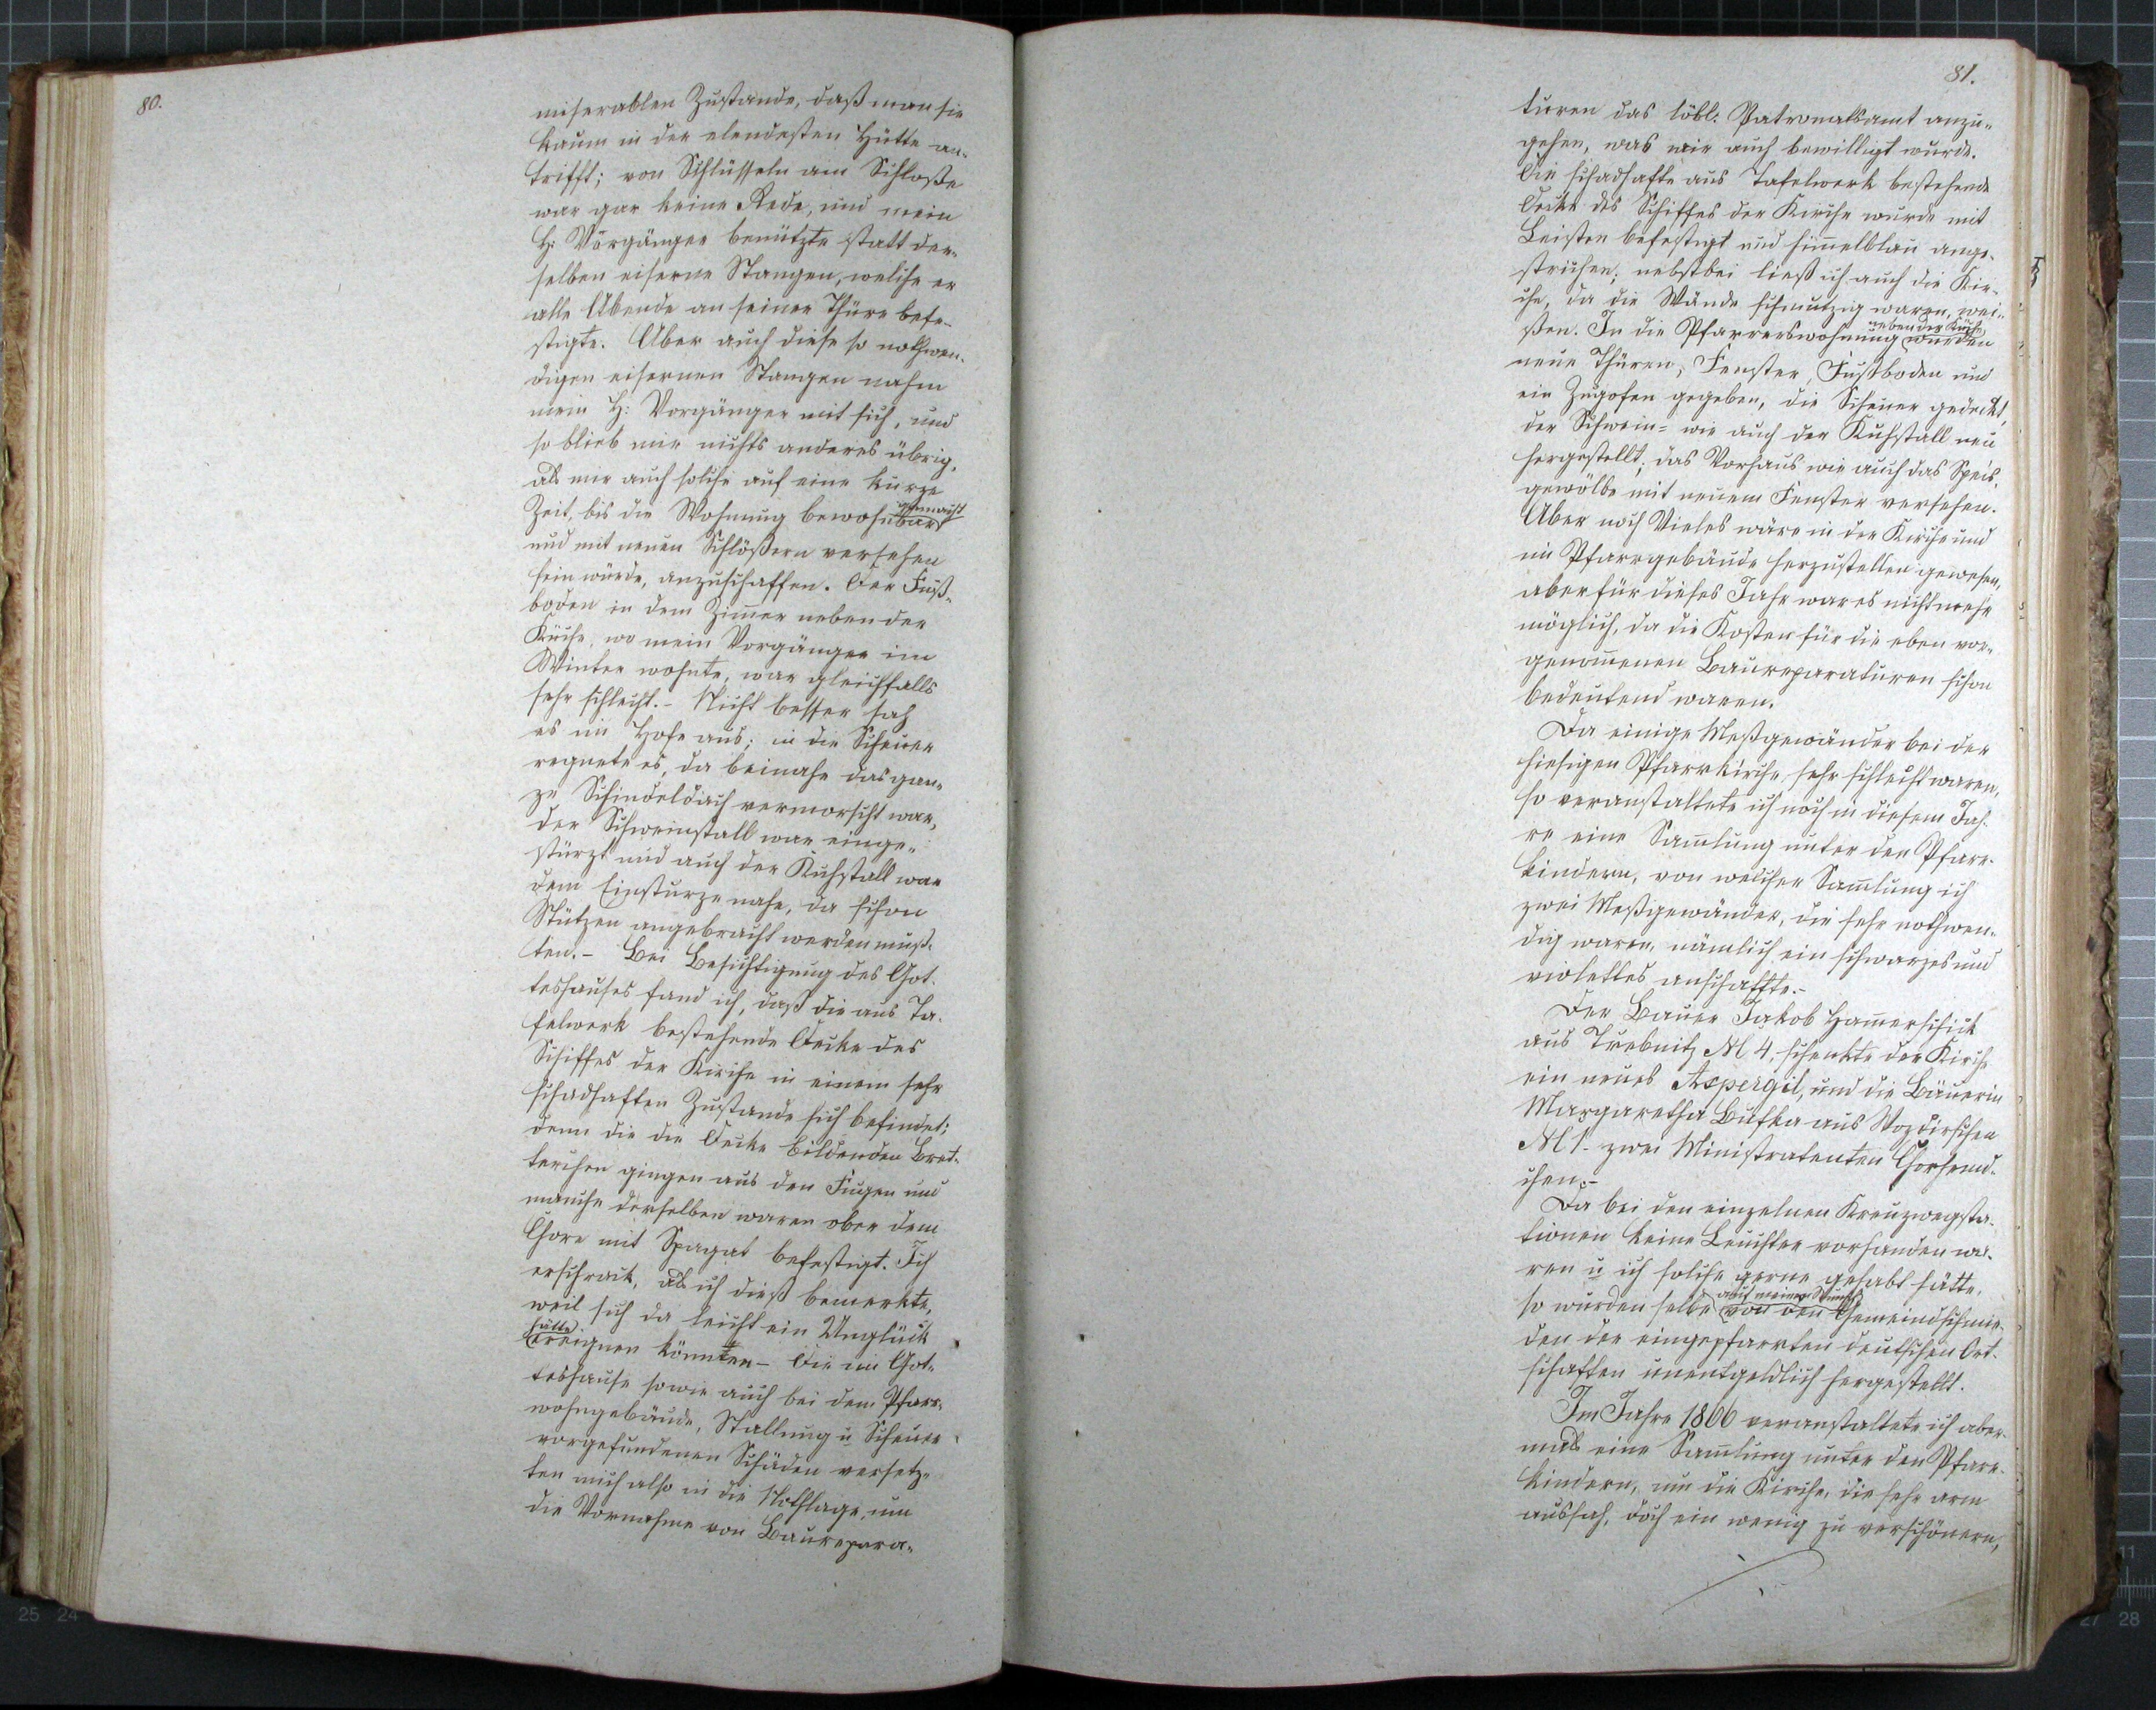 80.
miserablen Zustande, daß man sie
kaum in der elendesten Hütte an-
trifft; von Schlüsseln am Schloße
war gar keine Rede, und mein
H: Vorgänger benützte statt der-
selben eiserne Stangen, welche er
alle Abende an seiner Thüre befe-
stigte. Aber auch diese so nothwen-
digen eisernen Stangen nahm
mein H: Vorgänger mit sich, und
so blieb mir nichts anderes übrig,
als mir auch solche auf eine kurze
gemacht
Zeit, bis die Wohnung bewohnbar
und mit neuen Schlößern versehen
sein würde, anzuschaffen. Der Fuß-
boden in dem Zimmer neben der
Küche, wo mein Vorgänger im
Winter wohnte, war gleichfalls
sehr schlecht. - Nicht besser sah
es im Hofe aus; in die Scheuer
regnete es, da beinahe das gan-
ze Schindeldach vermorscht war,
der Schweinstall war einge-
stürzt und auch der Kuhstall war
dem Einsturze nahe, da schon
Stützen angebracht werden muß-
ten. - Bei Besichtigung des Got-
teshauses fand ich, daß die aus Ta-
felwerk bestehende Decke des
Schiffes der Kirche in einem sehr
schadhaften Zustande sich befindet;
denn die die Decke bildenden Bret-
terchen gingen aus den Fugen und
manche derselben waren ober dem
Chore mit Spagat befestigt. Ich
erschrack, als ich dieß bemerkte,
weil sich da leicht ein Unglück
hätte
ereignen könnten - Die im Got-
teshause sowie auch bei dem Pfarr-
wohngebäude, Stallung u Scheuer
vorgefundenen Schäden versetz-
ten mich also in die Nothlage, um
die Vornahme von Baurepara-
81.
turen das löbl: Patronatsamt anzu-
gehen, was mir auch bewilligt wurde.
Die schadhafte aus Tafelwerk bestehende
Decke des Schiffes der Kirche wurde mit
Leisten befestigt und himmelblau ange-
strichen; nebstbei ließ ich auch die Kir-
che, da die Wände schmutzig waren, wei-
neben der Küche
ßen. In die Pfarrerswohnung wurden
neue Thüren, Fenster, Fußboden und
ein Zugofen gegeben, die Scheuer gedeckt,
der Schwein= wie auch der Kuhstall neu
hergestellt; das Vorhaus wie auch das Speis-
gewölbe mit neuem Fenster versehen.
Aber noch Vieles wäre in der Kirche und
im Pfarrgebäude herzustellen gewesen,
aber für dieses Jahr war es nicht mehr
möglich, da die Kosten für die eben vor-
genommenen Baureparaturen schon
bedeutend waren.
Da einige Meßgewänder bei der
hiesigen Pfarrkirche sehr schlecht waren,
so veranstaltete ich noch in diesem Jah-
re eine Sammlung unter den Pfarr-
kindern, von welcher Sammlung ich
zwei Meßgewänder, die sehr nothwen-
dig waren, nämlich ein schwarzes und
violettes anschaffte. -
Der Bauer Jakob Hammerschick
aus Trebnitz N 4, schenkte der Kirche
ein neues Aspergil, und die Bäuerin
Margaretha Bufka aus
N 1. zwei Ministratenten Chorhemd-
chen. -
Da bei den einzelnen Kreuzwegsta-
tionen keine Leuchter vorhanden wa-
ren u ich solche gerne gehabt hätte,
auf meinen Wunsch
so wurden selbe von den Gemeindschmie-
den der eingepfarrten deutschen Ort-
schaften unentgeldlich hergestellt.
Im Jahre 1866 veranstaltete ich aber-
mals eine Sammlung unter den Pfarr-
kindern, um die Kirche, die sehr arm
aussah, doch ein wenig zu verschönern,
25 24
11
27 28